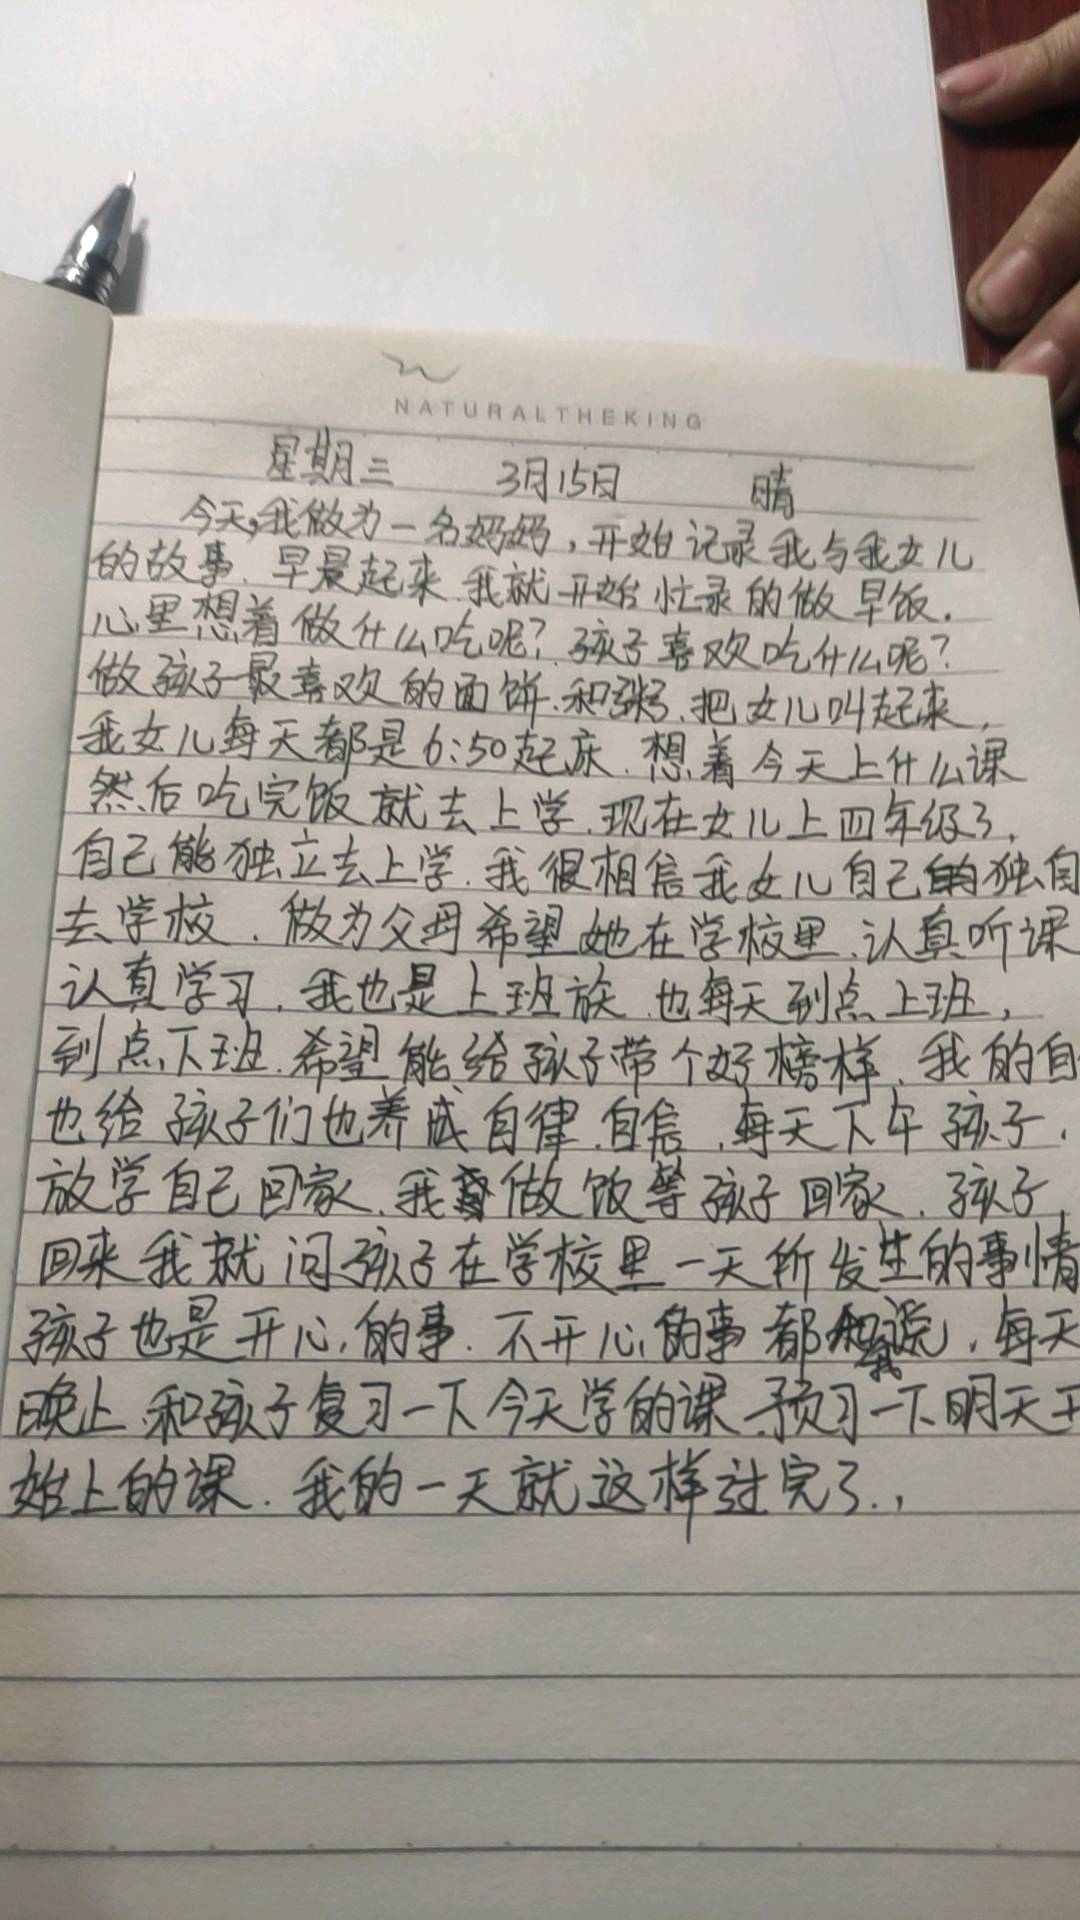 NATURALTHEKING
星期三 3月15日 晴
今天,我做为一名妈妈,开始记录我与我女儿
的故事.早晨起来.我就开始忙录的做早饭.
心里想着做什么吃呢?孩子喜欢吃什么呢?
做孩子最喜欢的面饼.和粥.把女儿叫起来,
我女儿每天都是6:50起床.想着今天上什么课
然后吃完饭就去上学.现在女儿上四年级了,
自己能独立去上学.我很相信我女儿自己的独自
去学校.做为父母希望她在学校里.认真听课
认真学习.我也是上班族.也每天到点上班,
到点下班.希望能给孩子带个好榜样.我的自
也给孩子们也养成自律.自信,每天下午孩子,
放学自己回家.我做饭等孩子回家.孩子
回来我就问孩子在学校里一天所发生的事情
孩子也是开心的事.不开心的事都和我说,每天
晚上.和孩子复习一下今天学的课.预习一下明天开
始上的课.我的一天就这样过完了.,